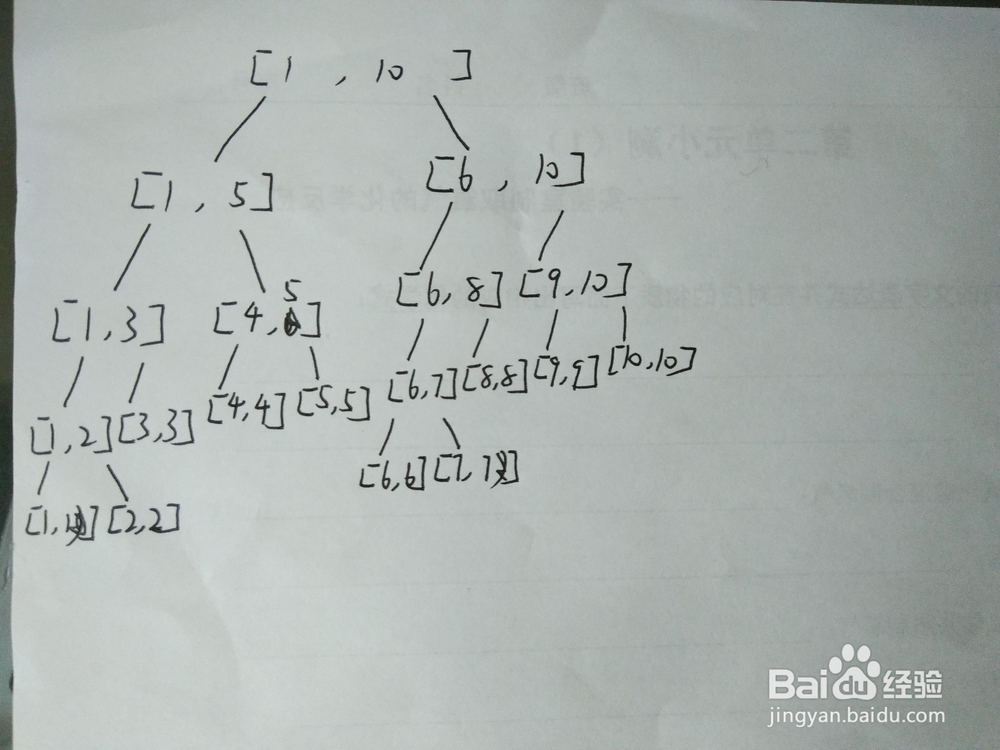 [1 , 10 ]
[1 , 5] [6 , 10]
[1,3] [4,5] [6,8] [9,10]
[1,2] [3,3] [4,4] [5,5] [6,7] [8,8] [9,9] [10,10]
[1,1] [2,2] [6,6] [7,7]
第二单元小测（1）
Baidu 经验
jingyan.baidu.com